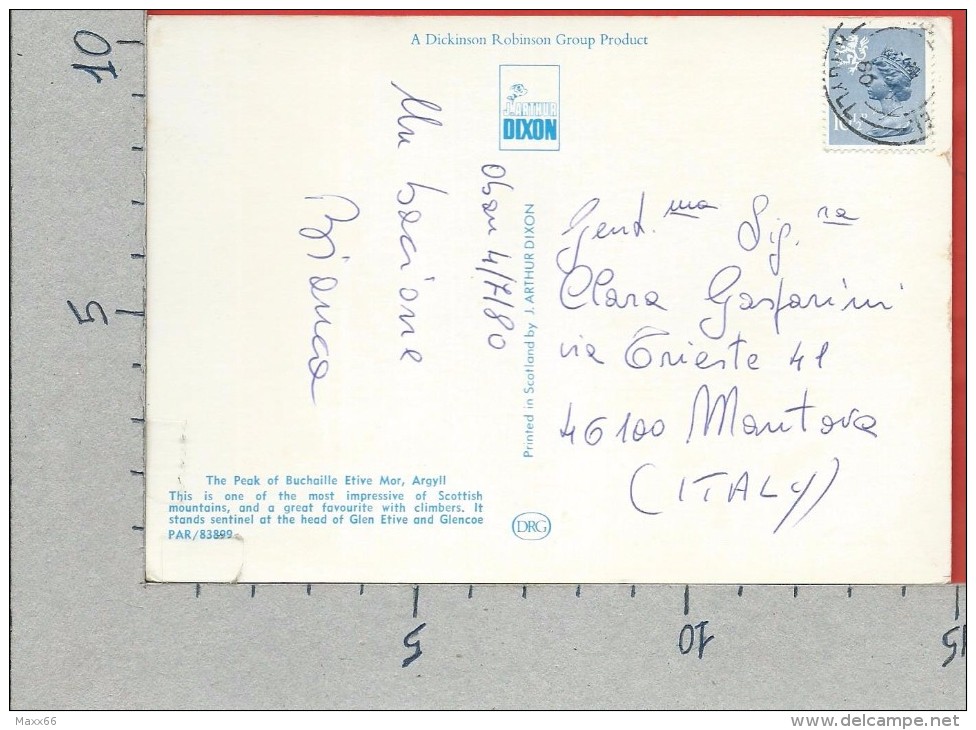 A Dickinson Robinson Group Product
J. ARTHUR
DIXON
ARGYLL
Oban 4/7/80
Un bacione
Bianca
Printed in Scotland by J. ARTHUR DIXON
Gent.ma Sig.ra
Clara Gasparini
via Trieste 41
46100 Mantova
(ITALY)
The Peak of Buchaille Etive Mor, Argyll
This is one of the most impressive of Scottish
mountains, and a great favourite with climbers. It
stands sentinel at the head of Glen Etive and Glencoe
PAR/83899
DRG
10
5
5
10
15
Maxx66
www.delcampe.net